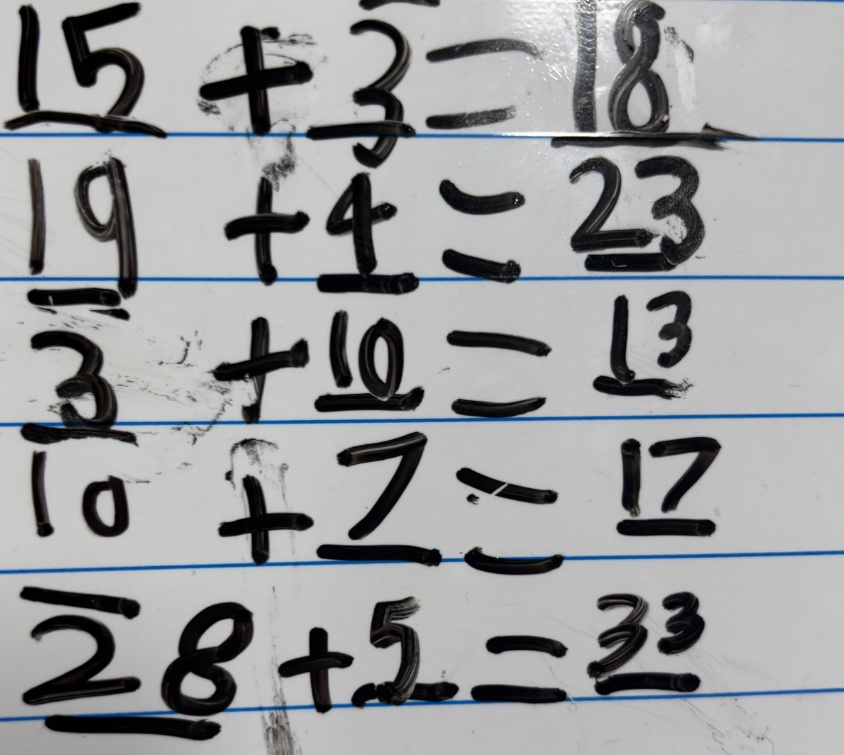 15 + 3 = 18
19 + 4 = 23
3 + 10 = 13
10 + 7 = 17
28 + 5 = 33